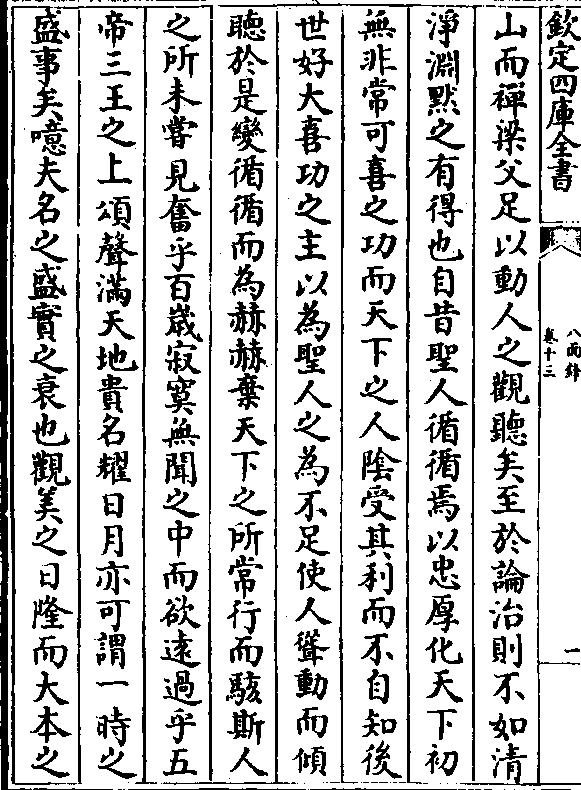 欽定四庫全書
八面鋒
卷十三
一
山而禪梁父足以動人之觀聽矣至於論治則不如清
淨淵黙之有得也自昔聖人循循焉以忠厚化天下初
無非常可喜之功而天下之人隂受其利而不自知後
世好大喜功之主以為聖人之為不足使人聳動而傾
聽於是變循循而為赫赫棄天下之所常行而駭斯人
之所未嘗見奮乎百嵗寂寞無聞之中而欲逺過乎五
帝三王之上頌聲滿天地貴名耀日月亦可謂一時之
盛事矣噫夫名之盛實之衰也觀美之日隆而大本之